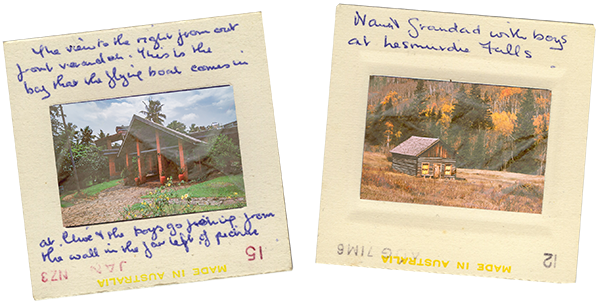 The view to the right from our
front verandah. This is the
bay that the flying boat comes in
at. Clive & the boys go fishing from
the wall in the far left of picture
15
JAN N73
MADE IN AUSTRALIA
Nan & Grandad with boys
at Lesmurdie Falls.
12
AUG 71M8
MADE IN AUSTRALIA